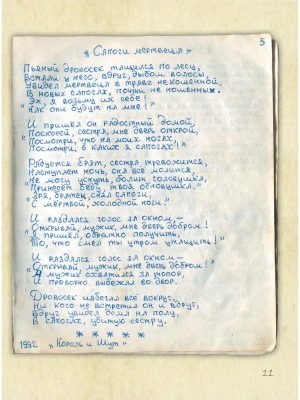 5
"Сапоги мертвеца"
Пьяный дровосек тащился по лесу,
Встали у него, вдруг, дыбом волосы,
Увидел мертвеца в траве не коменной,
В новых сапогах, почти не ношенных.
"Эх, я возьму их себе!
Как они будут на мне!"
И пришёл он радостный домой,
"Поскорей, сестра, мне дверь открой,
Посмотри, что на моих ногах,
Посмотри, в каких я сапогах!"
Радуется брат, сестра тревожится,
Наступает ночь, она всё молится,
"Не могу уснуть, болит головушка,
Принесёт беду, твоя обновушка.
Зря, братец, снял сапоги,
С мёртвой, холодной ноги."
И раздался голос за окном—
"Открывай, мужик, мне дверь добром!
Я пришёл, обратно получить,
То, что смел ты утром утащить!"
И раздался голос за окном—
"Открывай мужик, мне дверь добром!"
И мужик схватился за топор,
И проворно выбежал во двор.
Дровосек избегал всё вокруг,
Ни кого не встретил он и вдруг,
Вдруг увидел дома на полу,
В сапогах, убитую сестру.
* * * * *
1992. "Король и Шут"
11